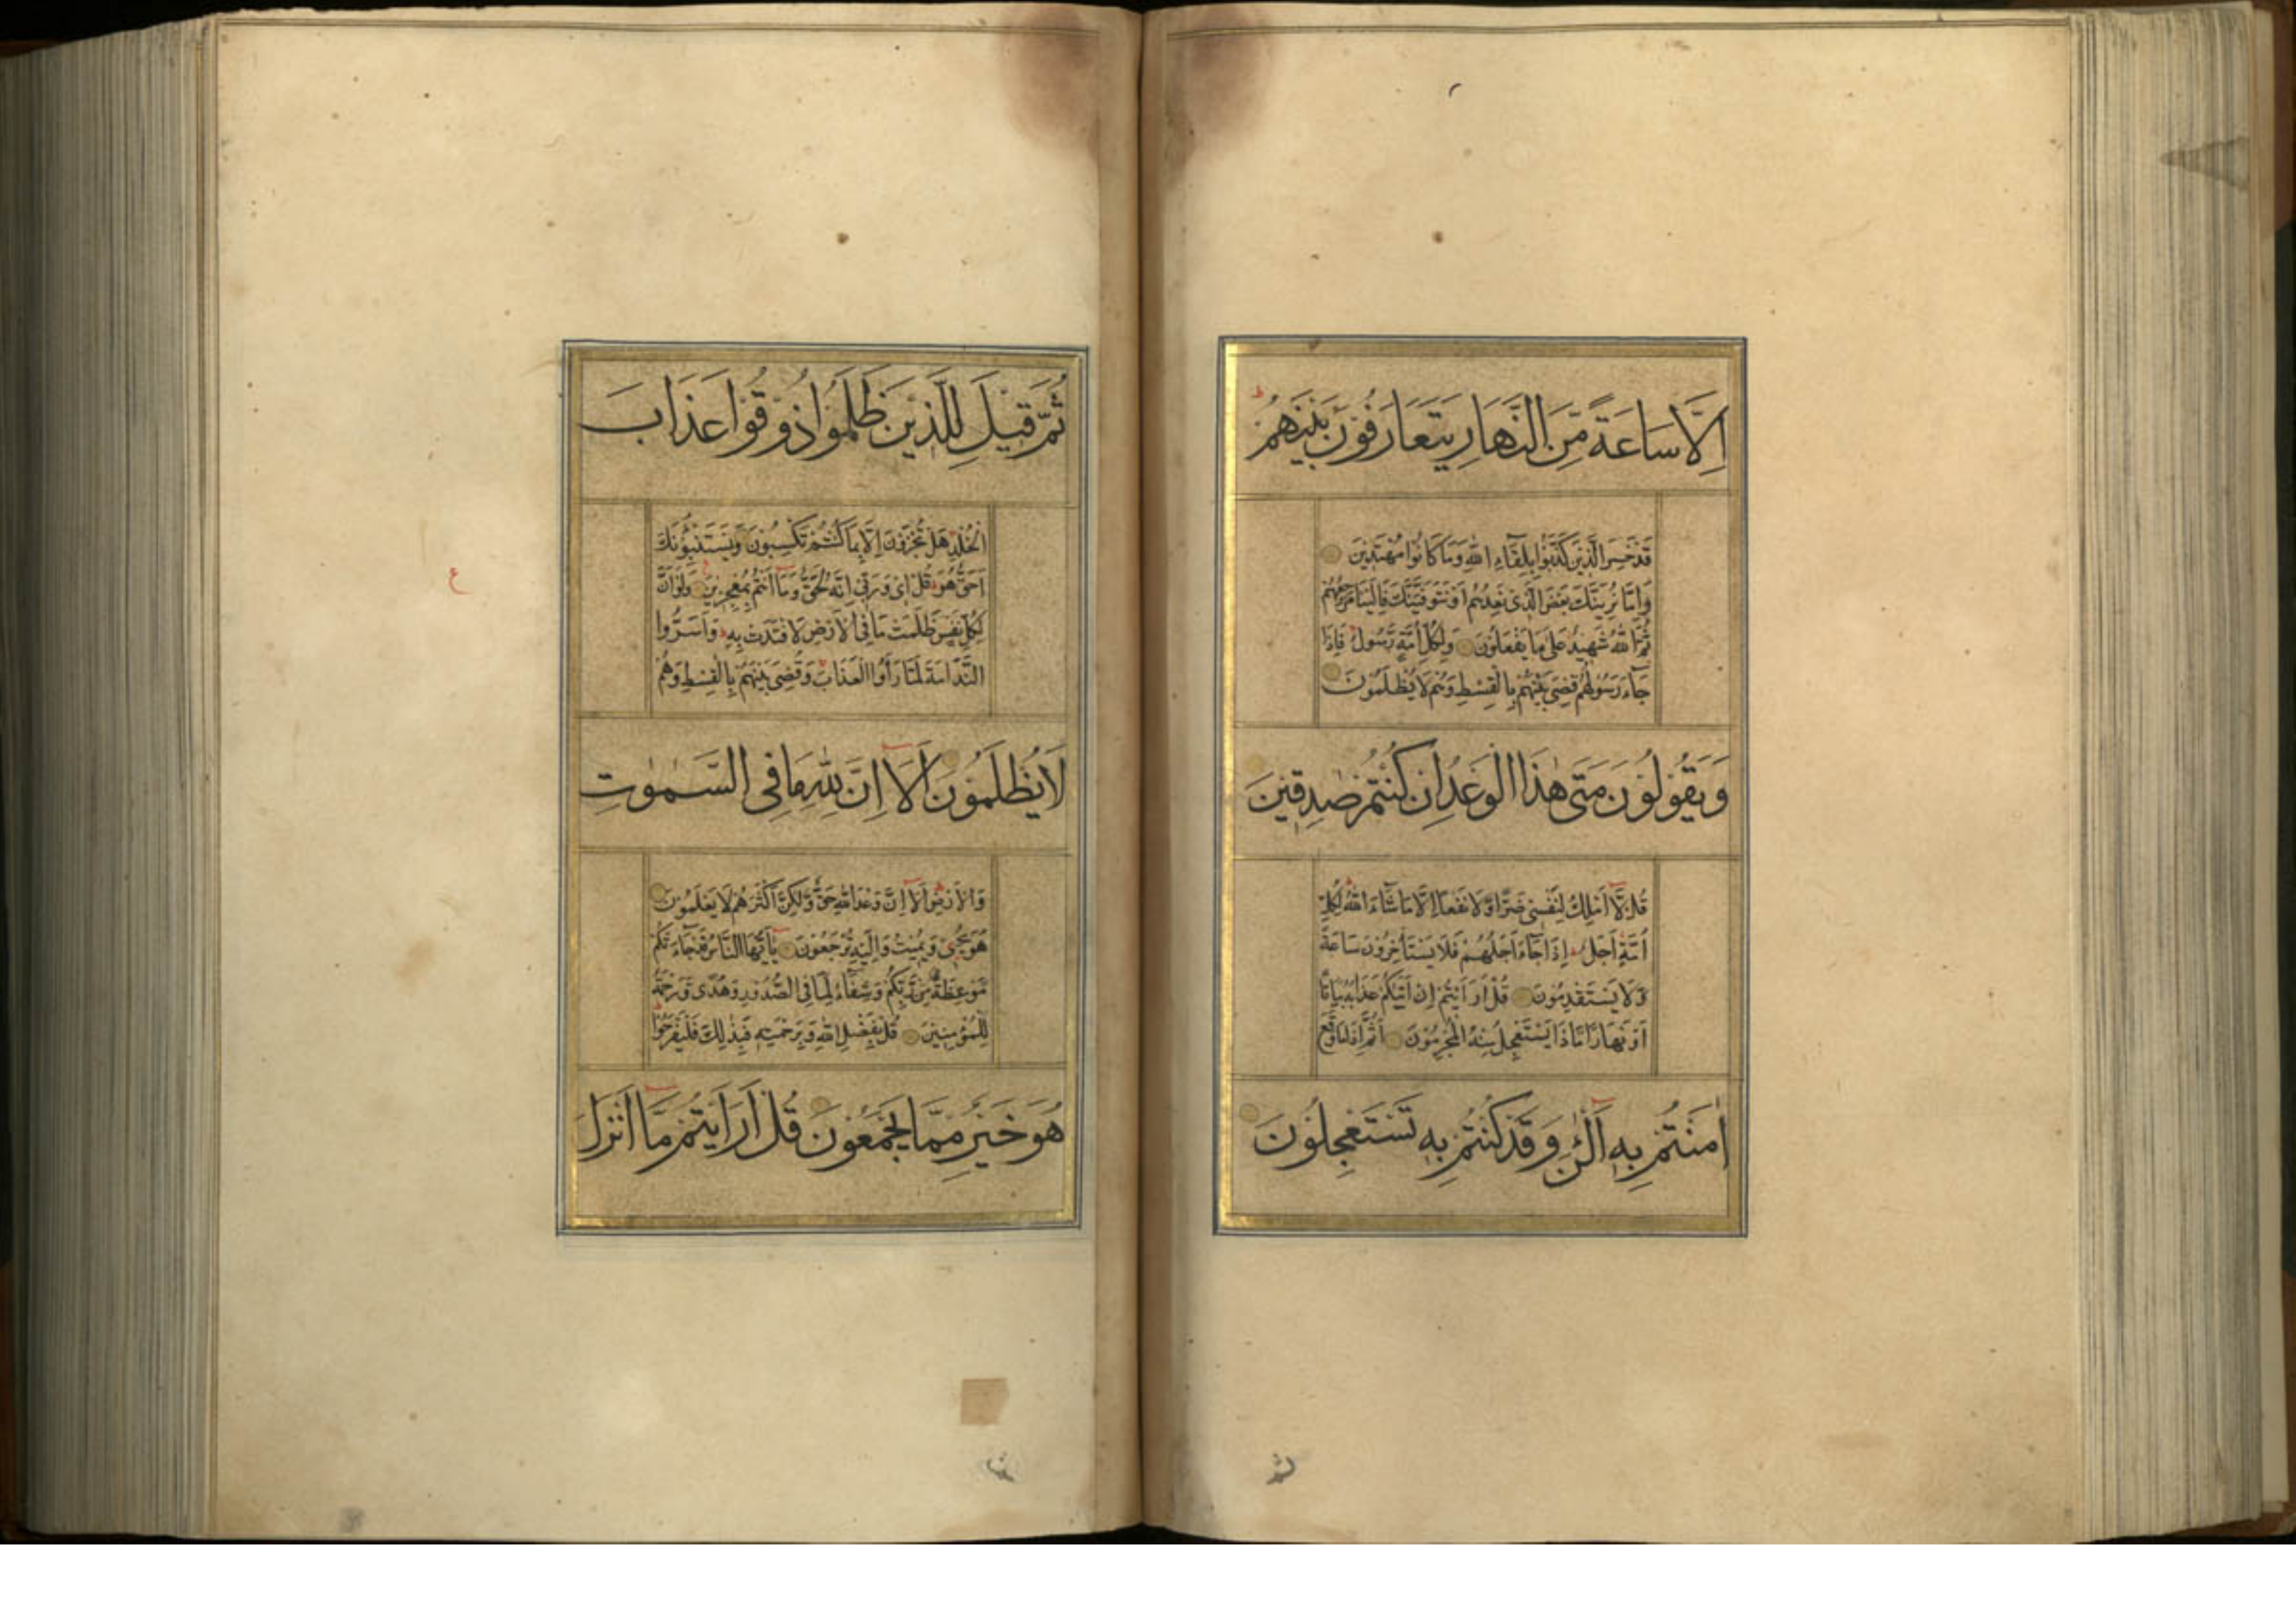 اِلَّا سَاعَةً مِّنَ النَّهَارِ يَتَعَارَفُوْنَ بَيْنَهُمْ
قَدْ خَسِرَ الَّذِيْنَ كَذَّبُوْا بِلِقَآءِ اللّٰهِ وَمَا كَانُوْا مُهْتَدِيْنَ
وَاِمَّا نُرِيَنَّكَ بَعْضَ الَّذِىْ نَعِدُهُمْ اَوْ نَتَوَفَّيَنَّكَ فَاِلَيْنَا مَرْجِعُهُمْ
ثُمَّ اللّٰهُ شَهِيْدٌ عَلٰى مَا يَفْعَلُوْنَ وَلِكُلِّ اُمَّةٍ رَّسُوْلٌ فَاِذَا
جَآءَ رَسُوْلُهُمْ قُضِىَ بَيْنَهُمْ بِالْقِسْطِ وَهُمْ لَا يُظْلَمُوْنَ
وَيَقُوْلُوْنَ مَتٰى هٰذَا الْوَعْدُ اِنْ كُنْتُمْ صٰدِقِيْنَ
قُلْ لَّا اَمْلِكُ لِنَفْسِىْ ضَرًّا وَّلَا نَفْعًا اِلَّا مَا شَآءَ اللّٰهُ لِكُلِّ
اُمَّةٍ اَجَلٌ اِذَا جَآءَ اَجَلُهُمْ فَلَا يَسْتَأْخِرُوْنَ سَاعَةً
وَّلَا يَسْتَقْدِمُوْنَ قُلْ اَرَاَيْتُمْ اِنْ اَتٰىكُمْ عَذَابُهٗ بَيَاتًا
اَوْ نَهَارًا مَّاذَا يَسْتَعْجِلُ مِنْهُ الْمُجْرِمُوْنَ اَثُمَّ اِذَا مَا وَقَعَ
اٰمَنْتُمْ بِهٖ آٰلْئٰنَ وَقَدْ كُنْتُمْ بِهٖ تَسْتَعْجِلُوْنَ
ثُمَّ قِيْلَ لِلَّذِيْنَ ظَلَمُوْا ذُوْقُوْا عَذَابَ
الْخُلْدِ هَلْ تُجْزَوْنَ اِلَّا بِمَا كُنْتُمْ تَكْسِبُوْنَ وَيَسْتَنْبِئُوْنَكَ
اَحَقٌّ هُوَ قُلْ اِىْ وَرَبِّىْ اِنَّهٗ لَحَقٌّ وَمَا اَنْتُمْ بِمُعْجِزِيْنَ وَلَوْ اَنَّ
لِكُلِّ نَفْسٍ ظَلَمَتْ مَا فِى الْاَرْضِ لَافْتَدَتْ بِهٖ وَاَسَرُّوا
النَّدَامَةَ لَمَّا رَاَوُا الْعَذَابَ وَقُضِىَ بَيْنَهُمْ بِالْقِسْطِ وَهُمْ
لَا يُظْلَمُوْنَ اَلَا اِنَّ لِلّٰهِ مَا فِى السَّمٰوٰتِ
وَالْاَرْضِ اَلَا اِنَّ وَعْدَ اللّٰهِ حَقٌّ وَّلٰكِنَّ اَكْثَرَهُمْ لَا يَعْلَمُوْنَ
هُوَ يُحْىٖ وَيُمِيْتُ وَاِلَيْهِ تُرْجَعُوْنَ يٰاَيُّهَا النَّاسُ قَدْ جَآءَتْكُمْ
مَّوْعِظَةٌ مِّنْ رَّبِّكُمْ وَشِفَآءٌ لِّمَا فِى الصُّدُوْرِ وَهُدًى وَّرَحْمَةٌ
لِّلْمُؤْمِنِيْنَ قُلْ بِفَضْلِ اللّٰهِ وَبِرَحْمَتِهٖ فَبِذٰلِكَ فَلْيَفْرَحُوْا
هُوَ خَيْرٌ مِّمَّا يَجْمَعُوْنَ قُلْ اَرَاَيْتُمْ مَّا اَنْزَلَ
ع